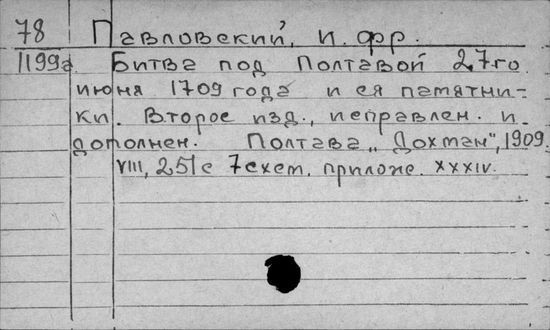 78 Павловский, И. Фр.
1199а Битва под Полтавой 27го
июня 1709 года и ея памятни-
ки. Второе изд., исправлен. и
дополнен. Полтава „Дохман", 1909
VIII, 251 с 7 схем. прилож. XXXIV.